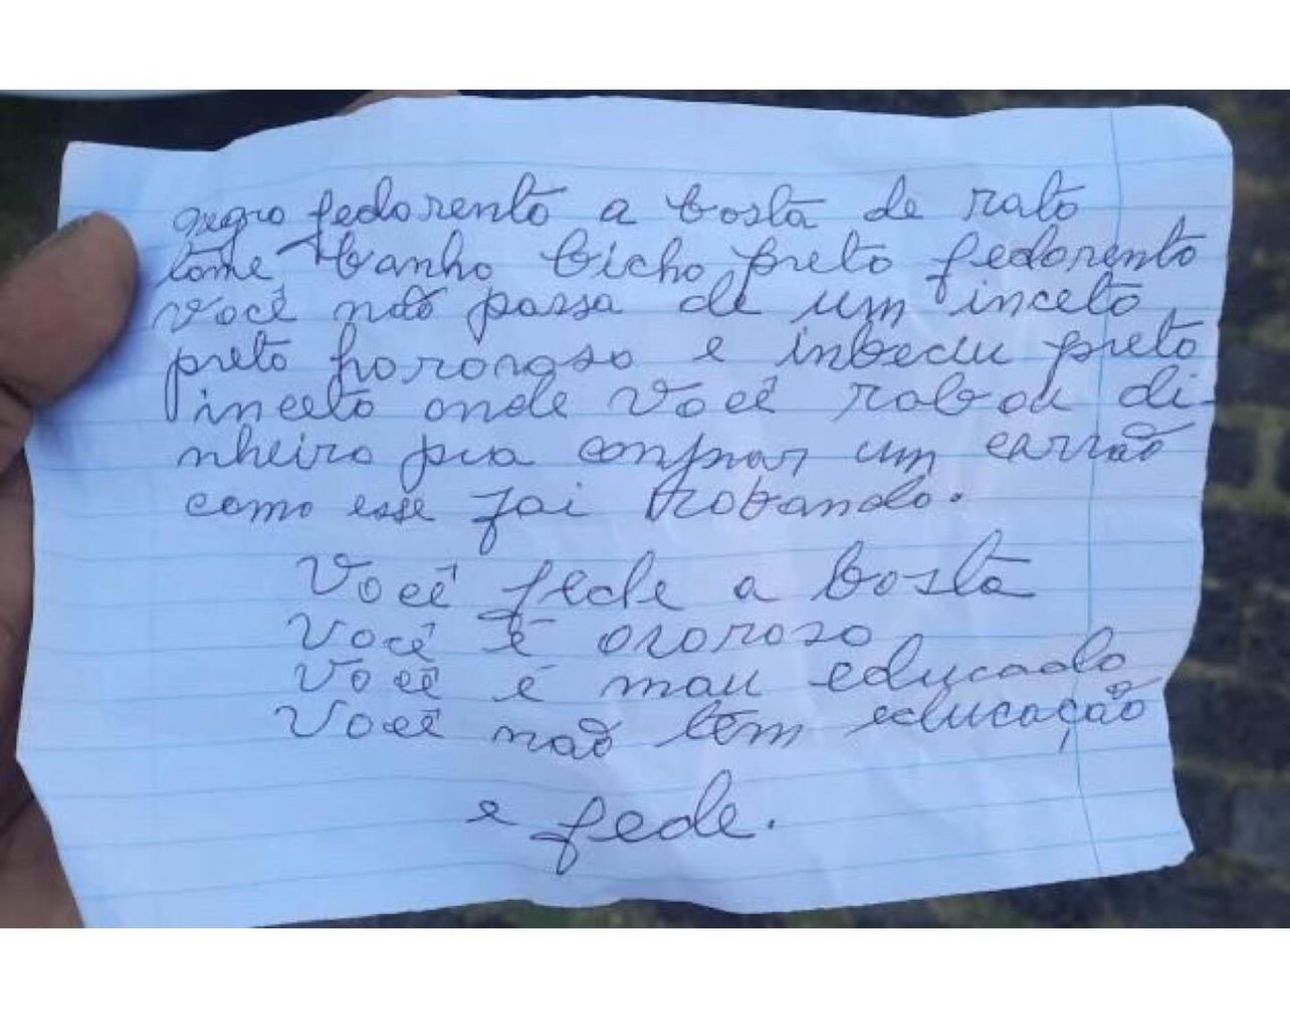 negro fedorento a bosta de rato
tome banho bicho preto fedorento
você não passa de um inceto
preto hororoso e inbeciu preto
inceto onde você robou di-
nheiro pra comprar um carrão
como esse foi robando.
Você fede a bosta
Você é ororoso
Você é mau educado
Você não tem educação
e fede.